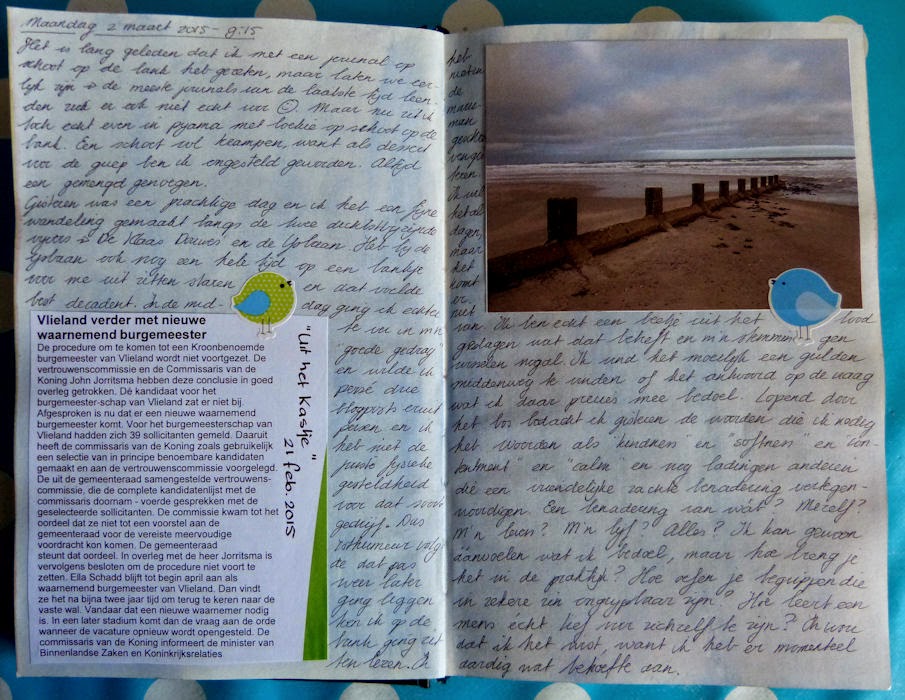 Maandag 2 maart 2015 - 9:15
Het is lang geleden dat ik met een journal op
schoot op de bank heb gezeten, maar laten we eer-
lijk zijn de meeste journals van de laatste tijd leen-
den zich er ook niet echt voor ☺. Maar nu zit ik
toch echt even in pyjama met boekie op schoot op de
bank. Een schoot vol krampen, want als dessert
voor de griep ben ik ongesteld geworden. Altijd
een gemengd genoegen.
Gisteren was een prachtige dag en ik heb een fijne
wandeling gemaakt langs de twee dichtstbijzijnde
De Klaas Douwes en de IJsbaan. Het bij de
IJsbaan ook nog een hele tijd op een bankje
voor me uit zitten staren en dat voelde
best decadent. In de mid- dag ging ik echter
te ver in m'n
"goede gedrag"
en wilde ik
persé drie
blogposts eruit
persen en ik
heb niet de
juiste fysieke
gesteldheid
voor dat soort
gedrijf. Dus
rothumeur volg-
de dat pas
weer later
ging liggen
toen ik op de
bank ging zit-
ten lezen. Ik
Vlieland verder met nieuwe
waarnemend burgemeester
De procedure om te komen tot een Kroonbenoemde
burgemeester van Vlieland wordt niet voortgezet. De
vertrouwenscommissie en de Commissaris van de
Koning John Jorritsma hebben deze conclusie in goed
overleg getrokken. Dé kandidaat voor het
burgemeester-schap van Vlieland zat er niet bij.
Afgesproken is nu dat er een nieuwe waarnemend
burgemeester komt. Voor het burgemeesterschap van
Vlieland hadden zich 39 sollicitanten gemeld. Daaruit
heeft de commissaris van de Koning zoals gebruikelijk
een selectie van in principe benoembare kandidaten
gemaakt en aan de vertrouwenscommissie voorgelegd.
De uit de gemeenteraad samengestelde vertrouwens-
commissie, die de complete kandidatenlijst met de
commissaris doornam - voerde gesprekken met de
geselecteerde sollicitanten. De commissie kwam tot het
oordeel dat ze niet tot een voorstel aan de
gemeenteraad voor de vereiste meervoudige
voordracht kon komen. De gemeenteraad
steunt dat oordeel. In overleg met de heer Jorritsma is
vervolgens besloten om de procedure niet voort te
zetten. Ella Schadd blijft tot begin april aan als
waarnemend burgemeester van Vlieland. Dan vindt
ze het na bijna twee jaar tijd om terug te keren naar de
vaste wal. Vandaar dat een nieuwe waarnemer nodig
is. In een later stadium komt dan de vraag aan de orde
wanneer de vacature opnieuw wordt opengesteld. De
commissaris van de Koning informeert de minister van
Binnenlandse Zaken en Koninkrijksrelaties.
"Uit het Kastje"
21 feb. 2015
heb
meteen
de
maar
Ik wil
het al
dagen,
maar
het
komt
er
niet
van. Ik ben echt een beetje uit het lood
geslagen wat dat betreft en m'n stemmin- gen
wisselen nogal. Ik vind het moeilijk een gulden
middenweg te vinden of het antwoord op de vraag
wat ik daar precies mee bedoel. Lopend door
het bos bedacht ik gisteren de woorden die ik nodig
heb woorden als "kindness" en "softness" en "con-
tentment" en "calm" en nog ladingen anderen
die een vriendelijke zachte benadering vertegen-
woordigen. Een benadering van wat? Mezelf?
M'n leven? M'n lijf? Alles? Ik kan gewoon
aanvoelen wat ik bedoel, maar hoe breng je
het in de praktijk? Hoe oefen je begrippen die
in zekere zin ongrijpbaar zijn? Hoe leert een
mens echt lief voor zichzelf te zijn? Ik wou
dat ik het wist, want ik heb er momenteel
aardig wat behoefte aan.